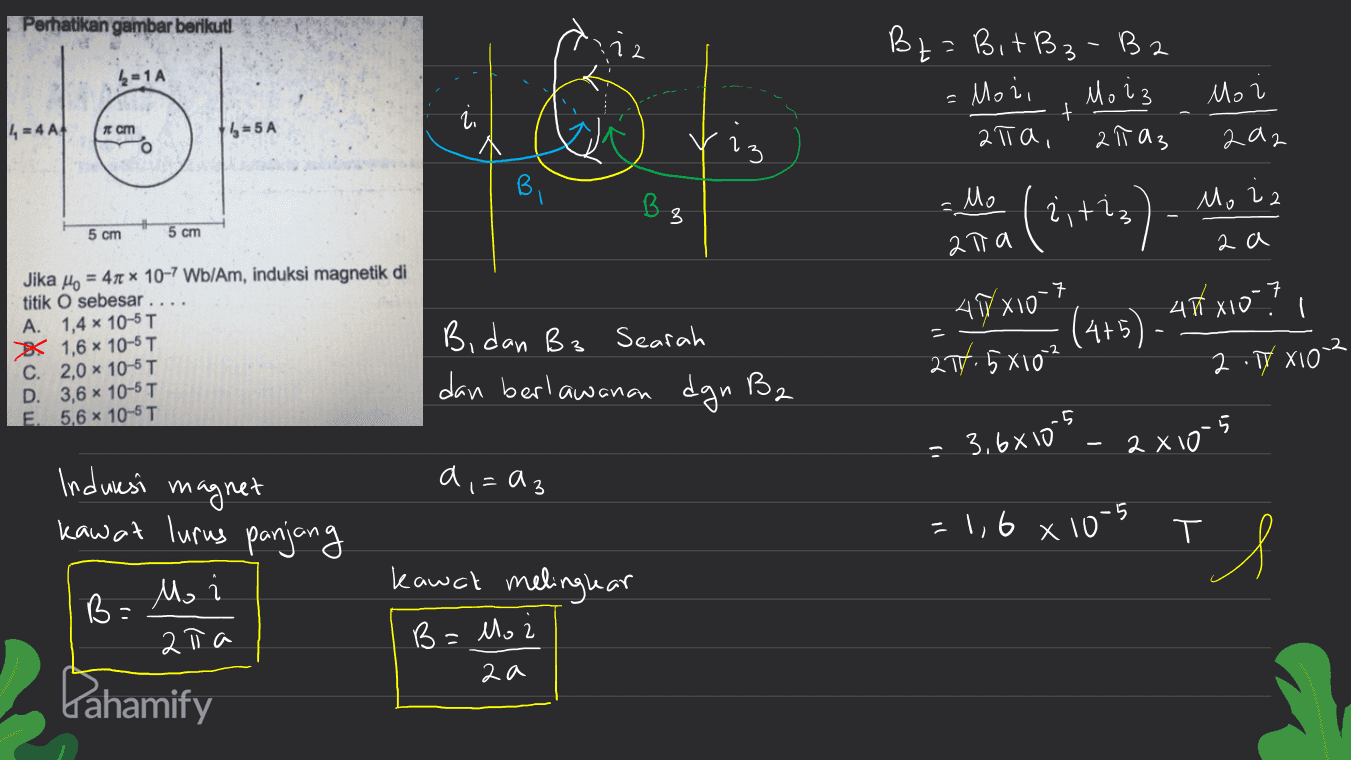 Perhatikan gambar berikut!
I₂ = 1 A
I₁ = 4 A
π cm
I₃ = 5 A
O
5 cm 5 cm
Jika μ₀ = 4π × 10⁻⁷ Wb/Am, induksi magnetik di
titik O sebesar . . . .
A. 1,4 × 10⁻⁵ T
B. 1,6 × 10⁻⁵ T
C. 2,0 × 10⁻⁵ T
D. 3,6 × 10⁻⁵ T
E. 5,6 × 10⁻⁵ T
i₂
i₁
i₃
B₁
B₃
B₁ dan B₃ Searah
dan berlawanan dgn B₂
a₁ = a₃
Induksi magnet
kawat lurus panjang
B = μ₀ i / 2πa
kawat melingkar
B = μ₀ i / 2a
Bt = B₁ + B₃ - B₂
= μ₀ i₁ / 2πa₁ + μ₀ i₃ / 2πa₃ - μ₀ i / 2a₂
= μ₀ / 2πa (i₁ + i₃) - μ₀ i₂ / 2a
= 4π × 10⁻⁷ / 2π . 5 × 10⁻² (4+5) - 4π × 10⁻⁷ . 1 / 2 . π × 10⁻²
= 3,6 × 10⁻⁵ - 2 × 10⁻⁵
= 1,6 × 10⁻⁵ T
Pahamify